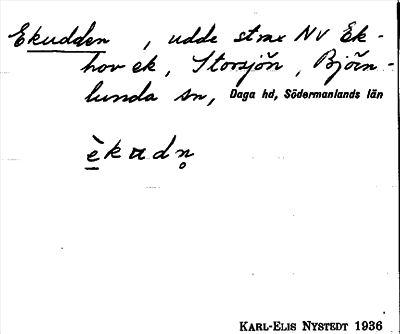 Ekudden , udde strax NV Ek-
hov ek, Storsjön, Björn-
lunda sn, Daga hd, Södermanlands län
èkɷdn̥
KARL-ELIS NYSTEDT 1936